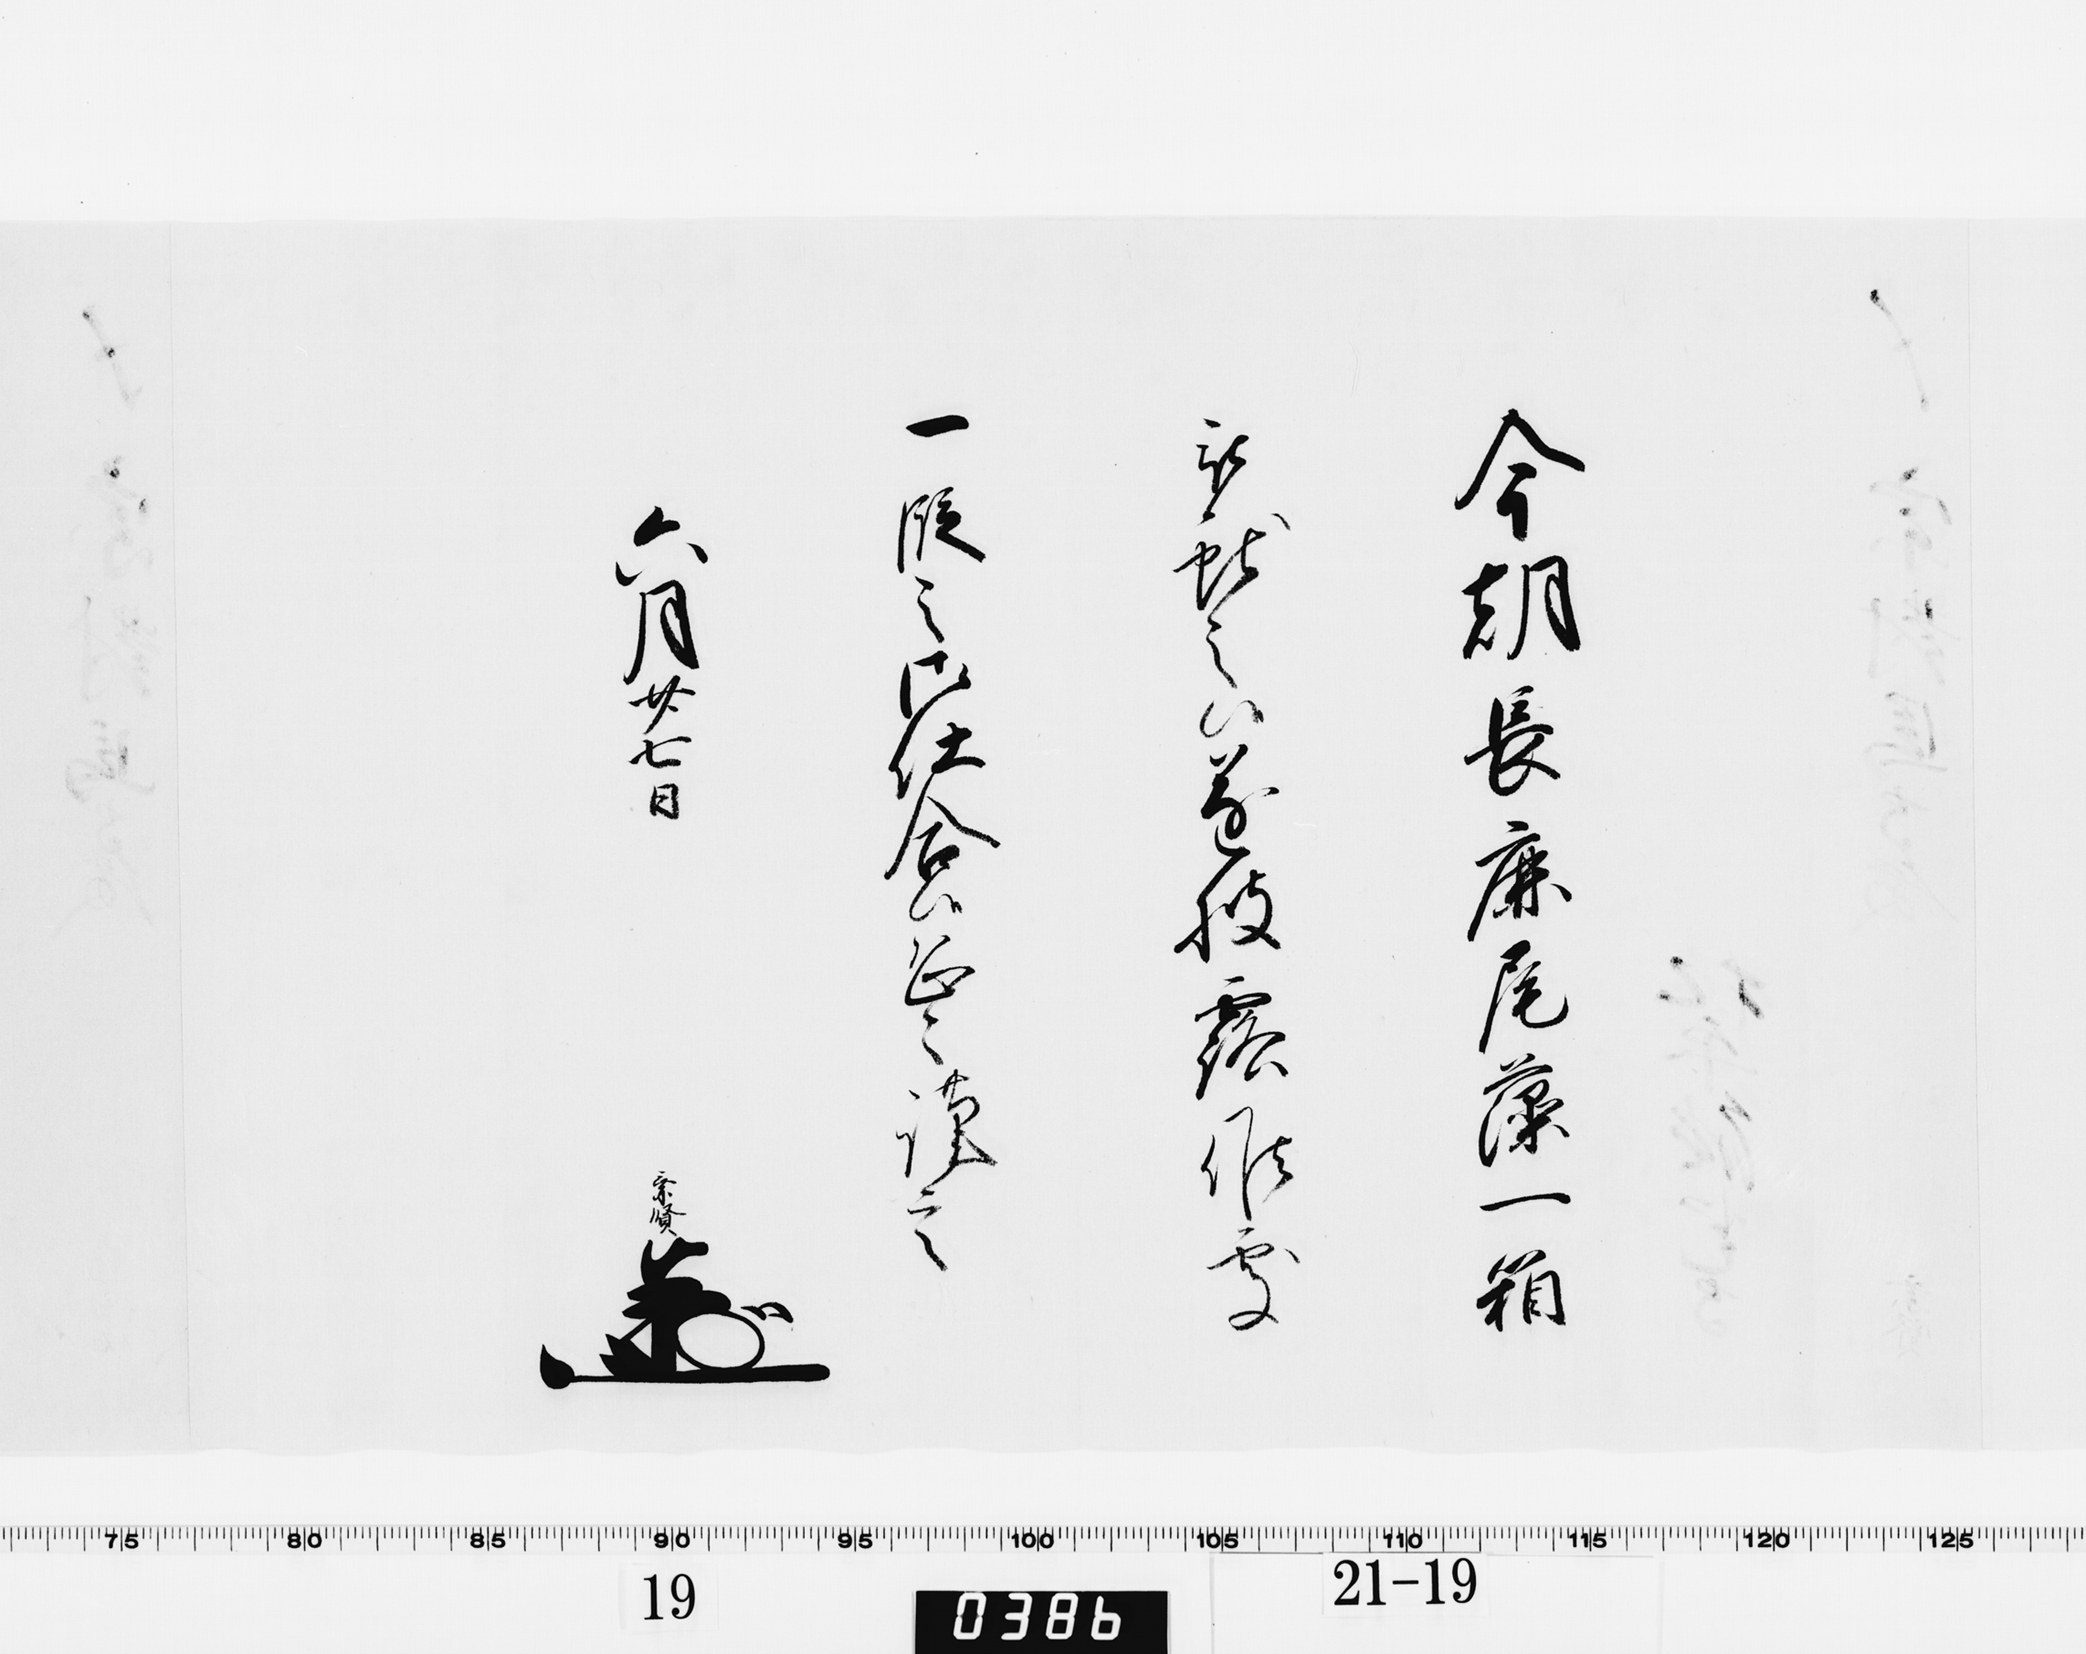 今朝長鹿尾藻一箱
被献之候遂披露候處
一段之御仕合候恐々謹言
六月廿七日
宗賢
75 80 85 90 95 100 105 110 115 120 125
19
0386
21-19